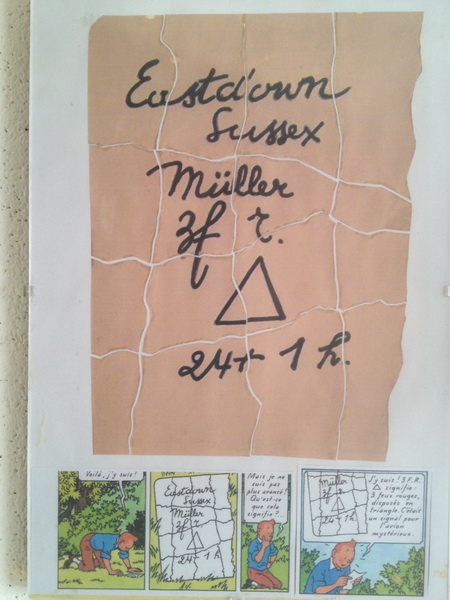 Eastdown
Sussex
Müller
3f r.
△
24+ 1 h.
Voilà, j'y suis!
Eastdown
Sussex
Müller
3f r
△
24+ 1 h
Mais je ne
suis pas
plus avancé!
Qu'est-ce
que cela
signifie?
Eastdown
Sussex
Müller
3f r
△
24+ 1 h.
J'y suis! 3.F.R.
△ signifie:
3 feux rouges,
disposés en
triangle. C'était
un signal pour
l'avion
mystérieux.